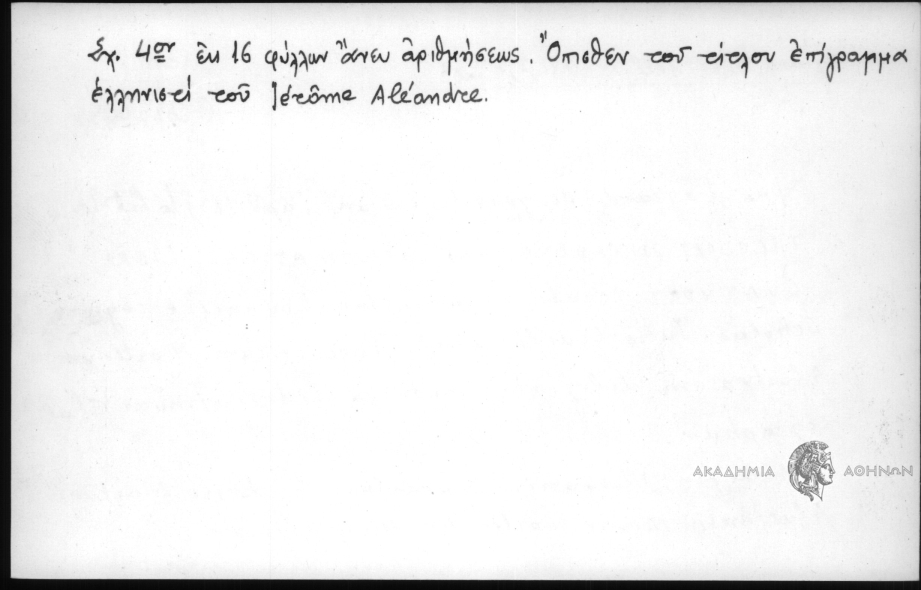 Σχ. 4ον ἐκ 16 φύλλων ἄνευ ἀριθμήσεως. Ὄπισθεν τοῦ τίτλου ἐπίγραμμα
ἑλληνιστί τοῦ Jérôme Aléandre.
ΑΚΑΔΗΜΙΑ ΑΘΗΝΩΝ